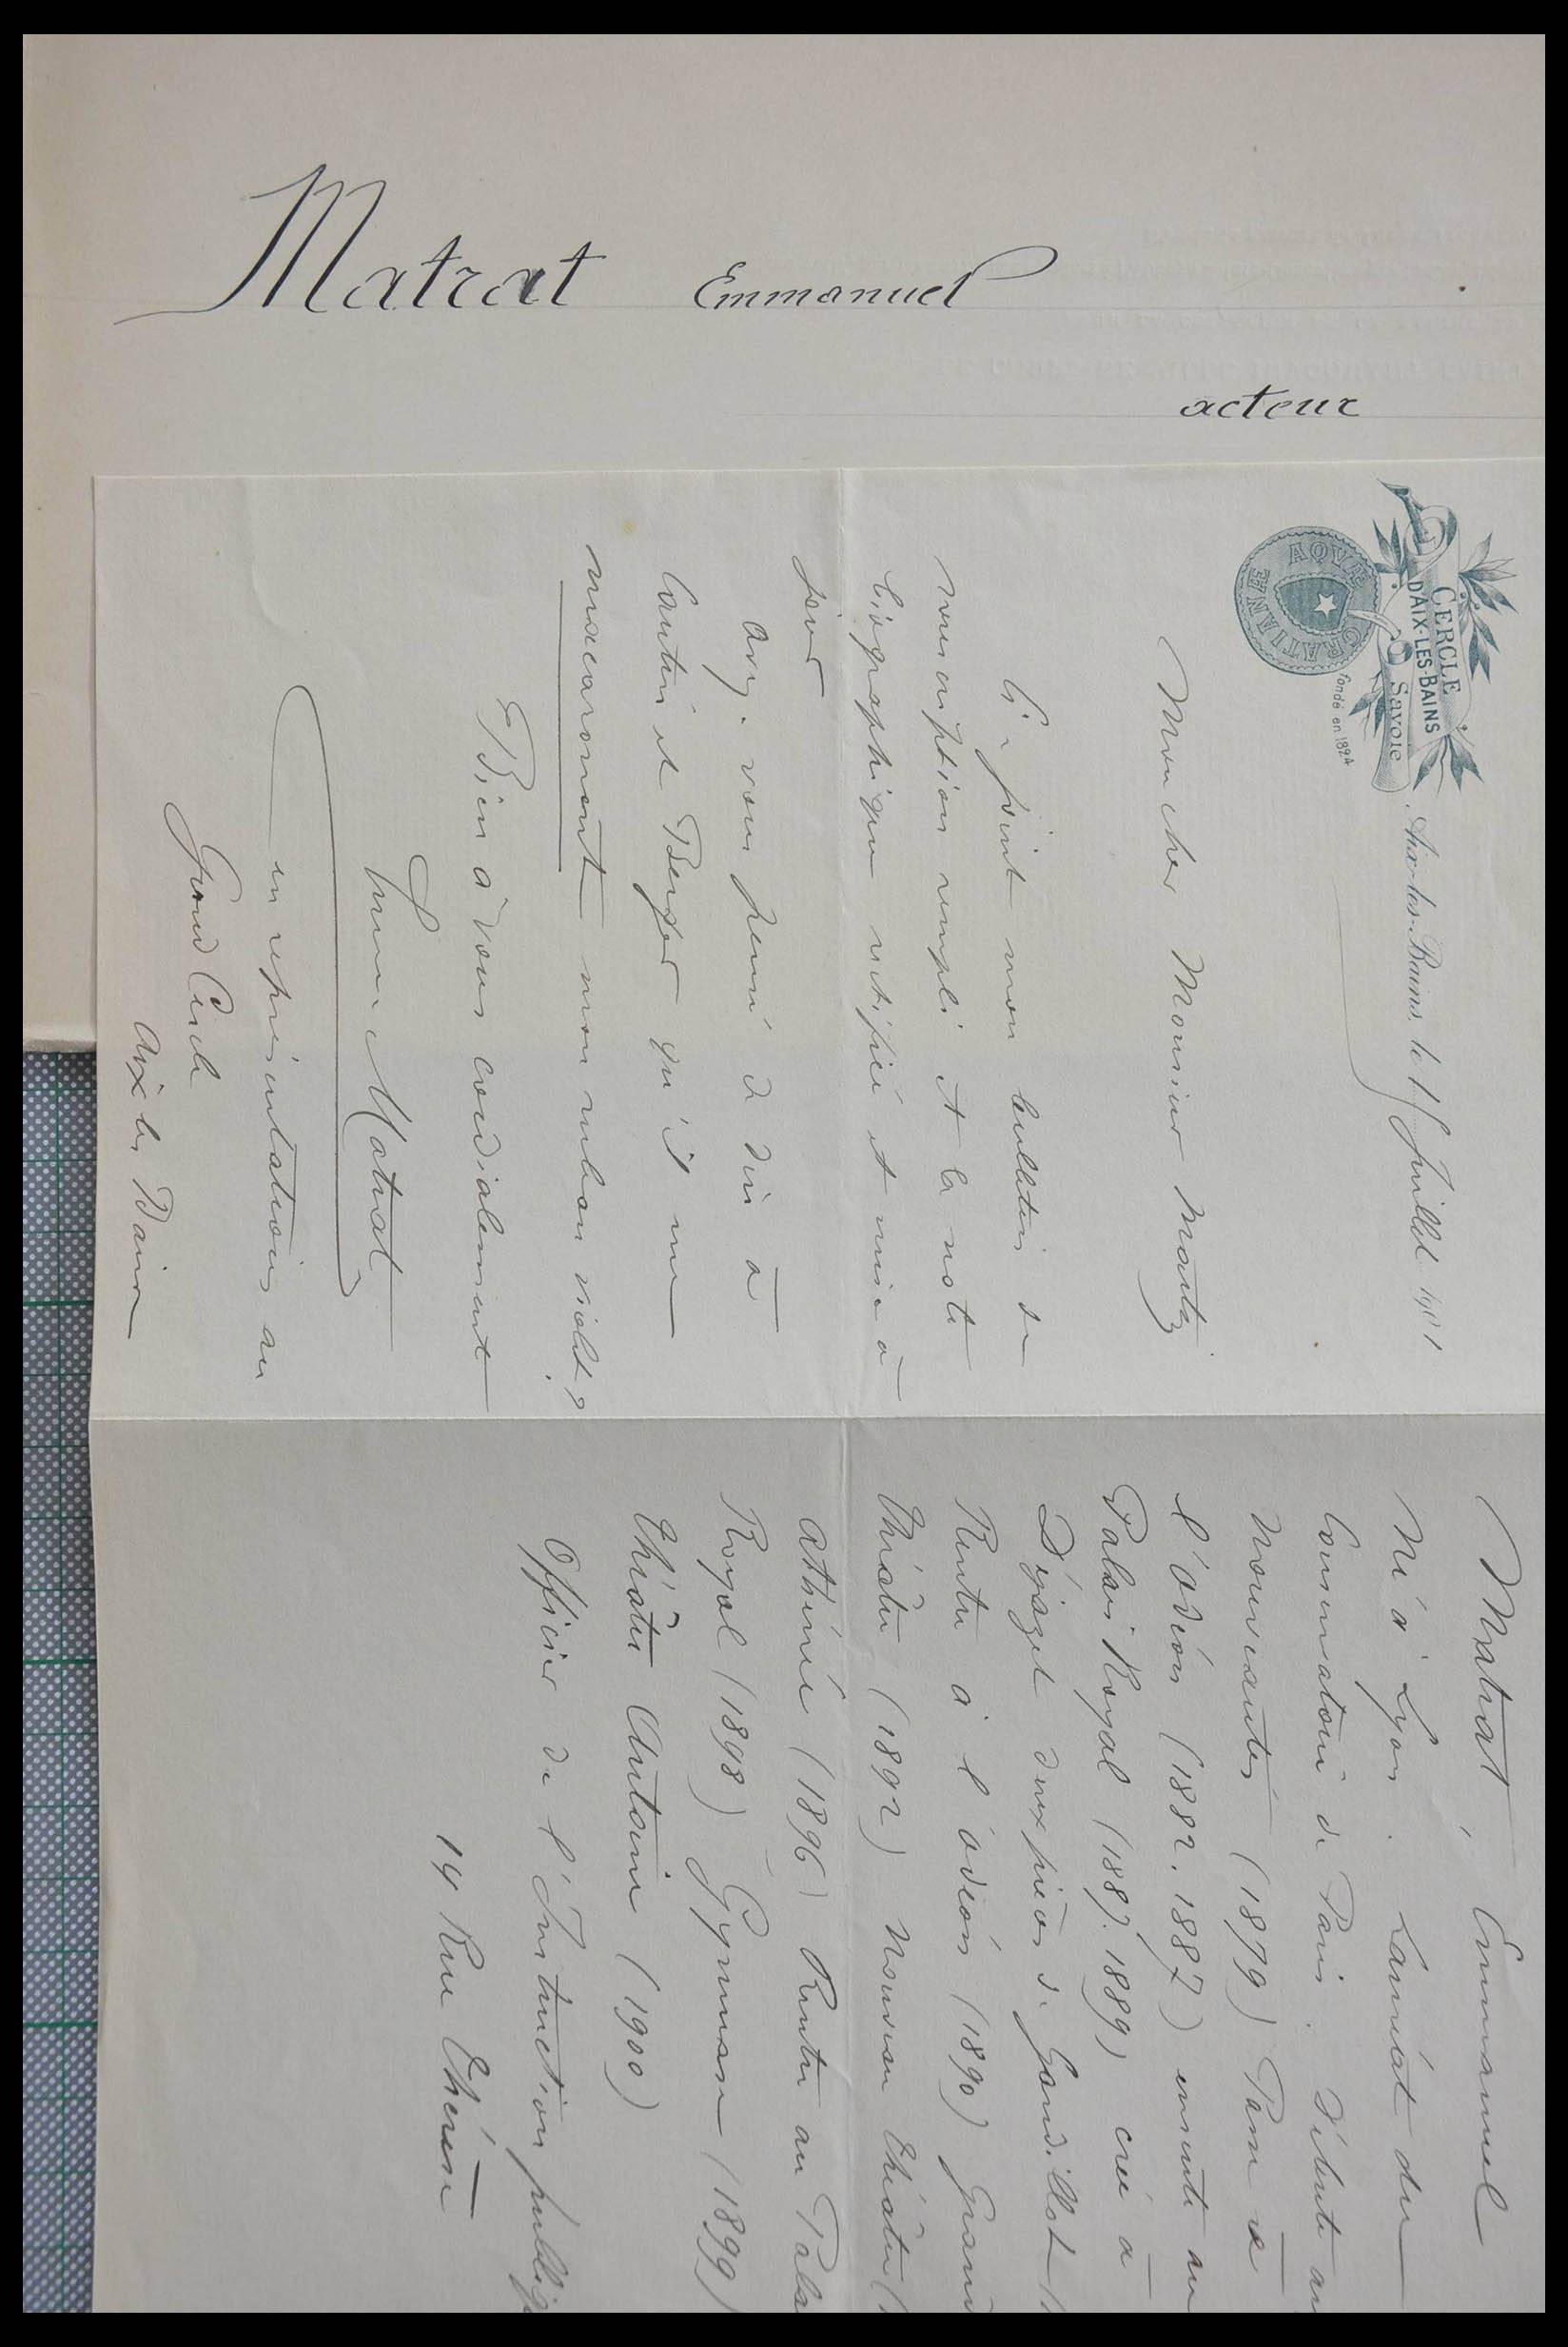 Matrat Emmanuel
acteur
CERCLE
D'AIX-LES-BAINS
Savoie
fondé en 1824
AQVÆ GRATIANÆ
Aix-les-Bains, le 1 Juillet 1901
Mon cher Monsieur Martz
Ci-joint mon bulletin de
souscription rempli et la note
biographique rectifiée et mise à
jour
Avez-vous pensé à dire à
Cantin et Berger qu'il me
mon ruban violet?
Bien à vous cordialement
Matrat
en représentations au
Grand Cercle
Aix les Bains
Matrat, Emmanuel
Né à Lyon. Lauréat du
Conservatoire de Paris. Débute aux
Nouveautés (1879) Passe à
l'Odéon (1882.1887) ensuite au
Palais Royal (1887.1889) crée à
Déjazet deux pièces de Gandillot
Rentre à l'Odéon (1890) Grand
Théâtre (1892) Nouveau Théâtre
Athénée (1896) Rentre au Palais
Royal (1898) Gymnase (1899)
Théâtre Antoine (1900)
Officier de l'Instruction publique
14 Rue Thérèse